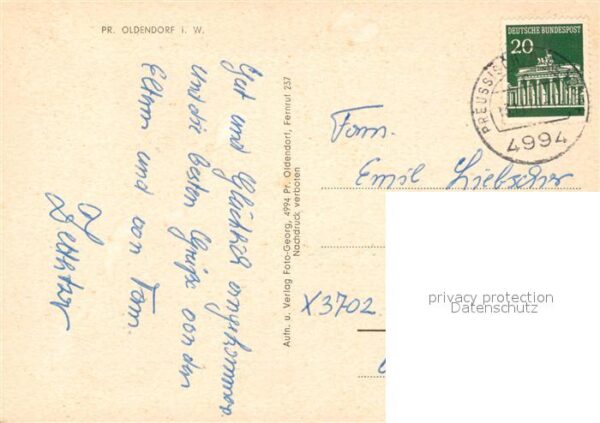 PR. OLDENDORF i. W.
Gut und Glücklich angekommen
und die besten Grüße von den
Eltern und von Fam.
Aufn. u. Verlag Foto-Georg, 4994 Pr. Oldendorf, Fernruf 237
Nachdruck verboten
DEUTSCHE BUNDESPOST
20
PREUSSISCH
4994
Fam.
Emil Liebscher
X3702
privacy protection
Datenschutz